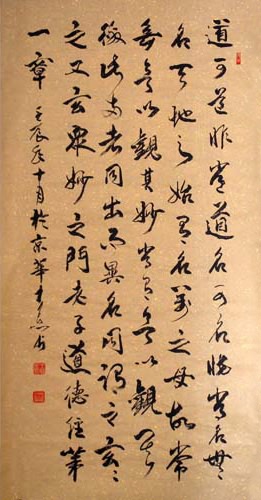 道可道非常道名可名非常名無
名天地之始有名万之母故常
無欲以觀其妙常有欲以觀其
徼此两者同出而異名同謂之玄玄
之又玄衆妙之門老子道德经第
一章 壬辰年十月於京華